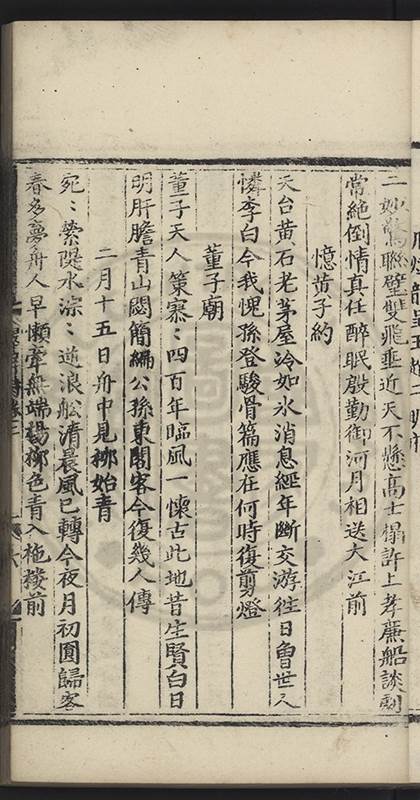 二妙驚聯璧雙飛垂近天不懸高士榻許上孝廉船談劇
常絶倒情真任醉眠殷勤御河月相送大江前
憶黄子約
天台黄石老茅屋冷如氷消息經年斷交游往日曾世人
憐李白今我愧孫登駿骨篇應在何時復剪燈
董子廟
董子天人策寥〻四百年臨風一懷古此地昔生賢白日
明肝膽青山閟簡編公孫東閣客今復幾人傳
二月十五日舟中見栁始青
宛〻縈隄水淙〻逆浪舩清晨風已轉今夜月初圓歸客
春多夢舟人早懶牽無端楊栁色青入柂樓前